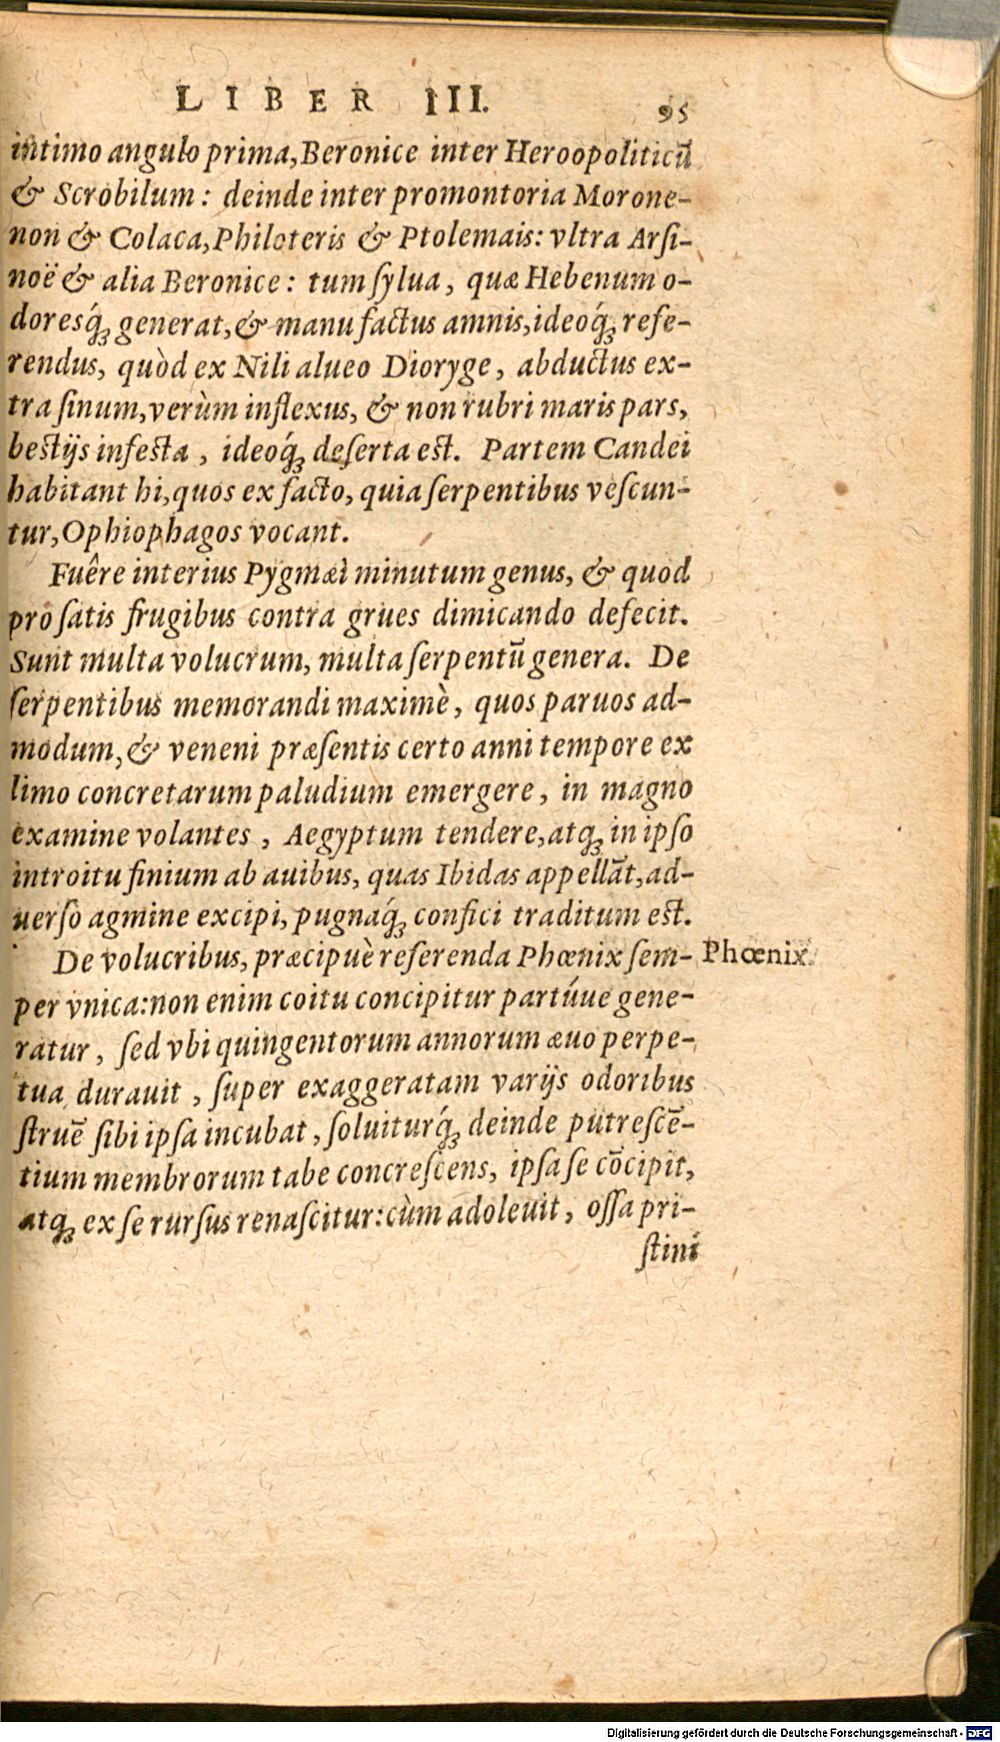 LIBER III. 95
intimo angulo prima, Beronice inter Heroopoliticū
& Scrobilum: deinde inter promontoria Morone-
non & Colaca, Philoteris & Ptolemais: vltra Arſi-
noë & alia Beronice: tum ſylua, quæ Hebenum o-
doresq́ꝫ generat, & manu factus amnis, ideoq́ꝫ refe-
rendus, quòd ex Nili alueo Dioryge, abductus ex-
tra ſinum, verùm inflexus, & non rubri maris pars,
beſtijs infeſta, ideoq́ꝫ deſerta eſt. Partem Candei
habitant hi, quos ex facto, quia ſerpentibus veſcun-
tur, Ophiophagos vocant.
Fuêre interius Pygmæi minutum genus, & quod
pro ſatis frugibus contra grues dimicando defecit.
Sunt multa volucrum, multa ſerpentū genera. De
ſerpentibus memorandi maximè, quos paruos ad-
modum, & veneni præſentis certo anni tempore ex
limo concretarum paludium emergere, in magno
examine volantes, Aegyptum tendere, atqꝫ in ipſo
introitu finium ab auibus, quas Ibidas appellāt, ad-
uerſo agmine excipi, pugnaq́ꝫ confici traditum eſt.
De volucribus, præcipuè referenda Phœnix ſem-
Phœnix.
per vnica: non enim coitu concipitur partúue gene-
ratur, ſed vbi quingentorum annorum æuo perpe-
tua durauit, ſuper exaggeratam varijs odoribus
ſtruē ſibi ipſa incubat, ſoluiturq́ꝫ deinde putreſcē-
tium membrorum tabe concreſcens, ipſa ſe cōcipit,
atqꝫ ex ſe rurſus renaſcitur: cùm adoleuit, oſſa pri-
ſtini
Digitalisierung gefördert durch die Deutsche Forschungsgemeinschaft - DFG